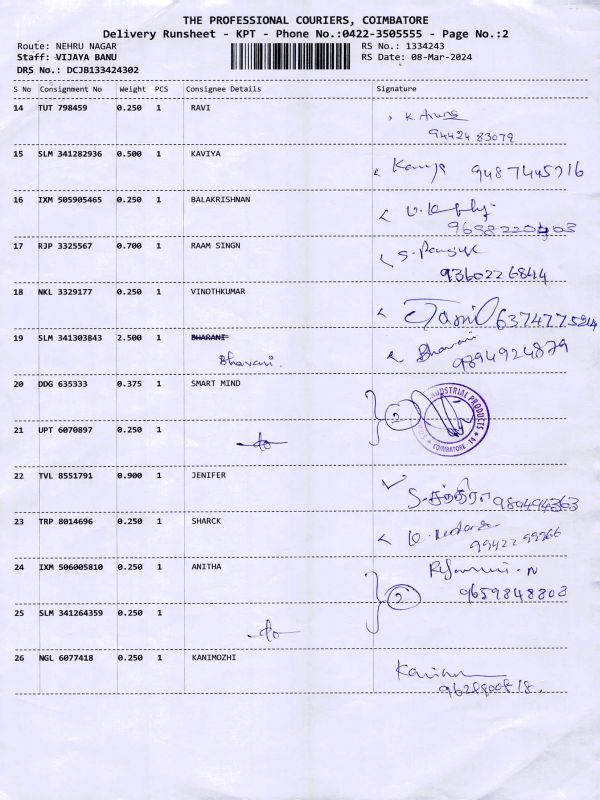 THE PROFESSIONAL COURIERS, COIMBATORE
Delivery Runsheet - KPT - Phone No.:0422-3505555 - Page No.:2
Route: NEHRU NAGAR RS No.: 1334243
Staff: VIJAYA BANU RS Date: 08-Mar-2024
DRS No.: DCJB133424302
S No Consignment No Weight PCS Consignee Details Signature
14 TUT 798459 0.250 1 RAVI
94424 83079
15 SLM 341282936 0.500 1 KAVIYA 9487445716
16 IXM 505905465 0.250 1 BALAKRISHNAN
17 RJP 3325567 0.700 1 RAAM SINGN
9360226844
18 NKL 3329177 0.250 1 VINOTHKUMAR 6374775914
19 SLM 341303843 2.500 1 BHARANI Bhavani
Bhavani. 9894924879
20 DDG 635333 0.375 1 SMART MIND
2 INDUSTRIAL PRODUCTS COIMBATORE - 14
21 UPT 6070897 0.250 1
do
22 TVL 8551791 0.900 1 JENIFER
23 TRP 8014696 0.250 1 SHARCK
9942299966
24 IXM 506005810 0.250 1 ANITHA
2 9659848803
25 SLM 341264359 0.250 1
do
26 NGL 6077418 0.250 1 KANIMOZHI